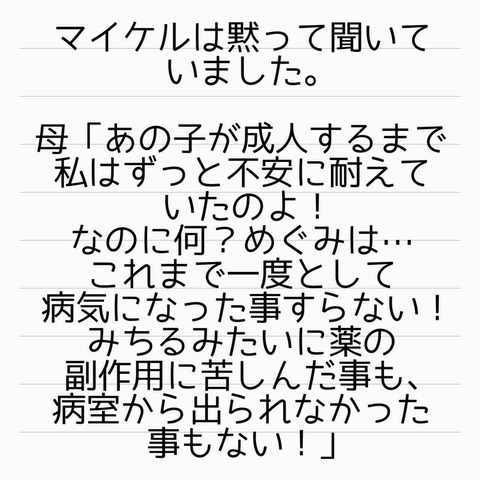 マイケルは黙って聞いて
いました。
母「あの子が成人するまで
私はずっと不安に耐えて
いたのよ！
なのに何？めぐみは…
これまで一度として
病気になった事すらない！
みちるみたいに薬の
副作用に苦しんだ事も、
病室から出られなかった
事もない！」